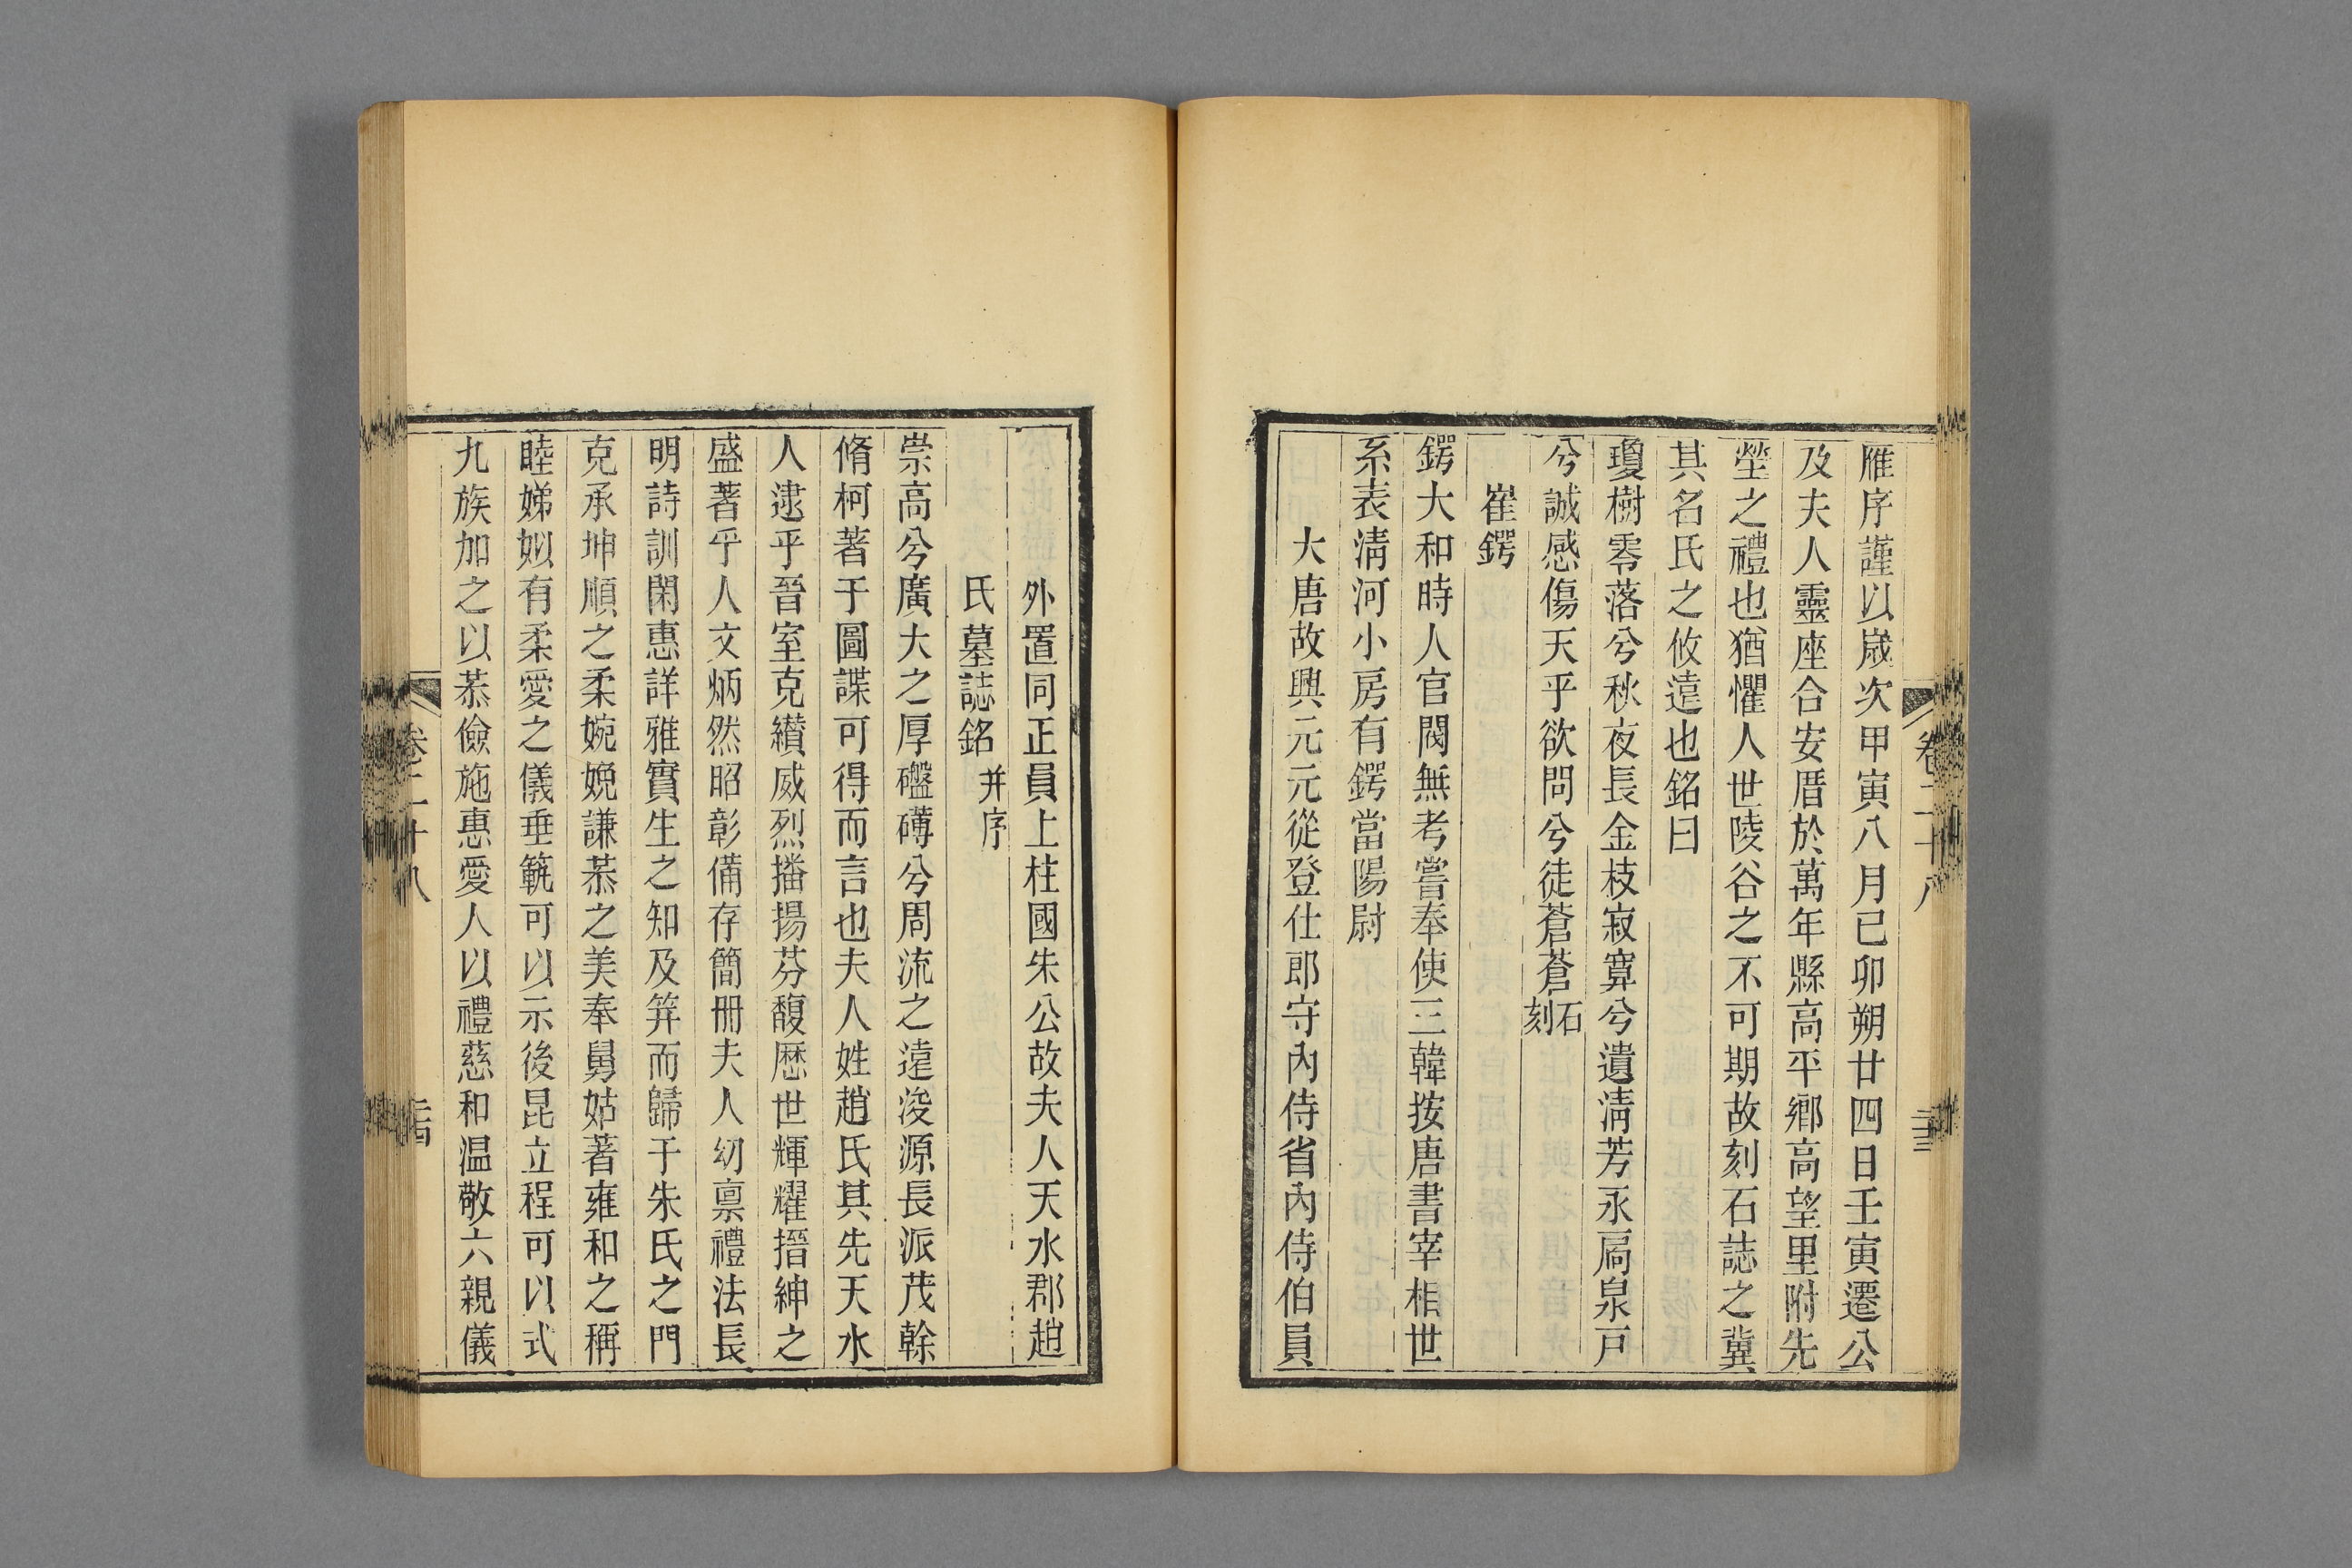 雁序謹以歲次甲寅八月已卯朔廿四日壬寅遷公
及夫人靈座合安厝於萬年縣高平鄉高望里附先
塋之禮也猶懼人世陵谷之不可期故刻石誌之冀
其名氏之攸遠也銘曰
瓊樹零落兮秋夜長金枝寂寞兮遺淸芳永扃泉戸
兮誠感傷天乎欲問兮徒蒼蒼石刻
崔鍔
鍔大和時人官閥無考嘗奉使三韓按唐書宰相世
系表淸河小房有鍔當陽尉
大唐故興元元從登仕郎守內侍省內侍伯員
外置同正員上柱國朱公故夫人天水郡趙
氏墓誌銘并序
崇高兮廣大之厚礚礴兮周流之遠浚源長派茂榦
脩柯著于圖諜可得而言也夫人姓趙氏其先天水
人逮乎晉室克纘威烈播揚芬馥歷世輝耀搢紳之
盛著乎人文炳然昭彰備存簡冊夫人幼禀禮法長
明詩訓閑惠詳雅實生之知及笄而歸于朱氏之門
克承坤順之柔婉娩謙恭之美奉舅姑著雍和之稱
睦娣姒有柔愛之儀垂範可以示後昆立程可以式
九族加之以恭儉施惠愛人以禮慈和温敬六親儀
卷二十八
卷二十八